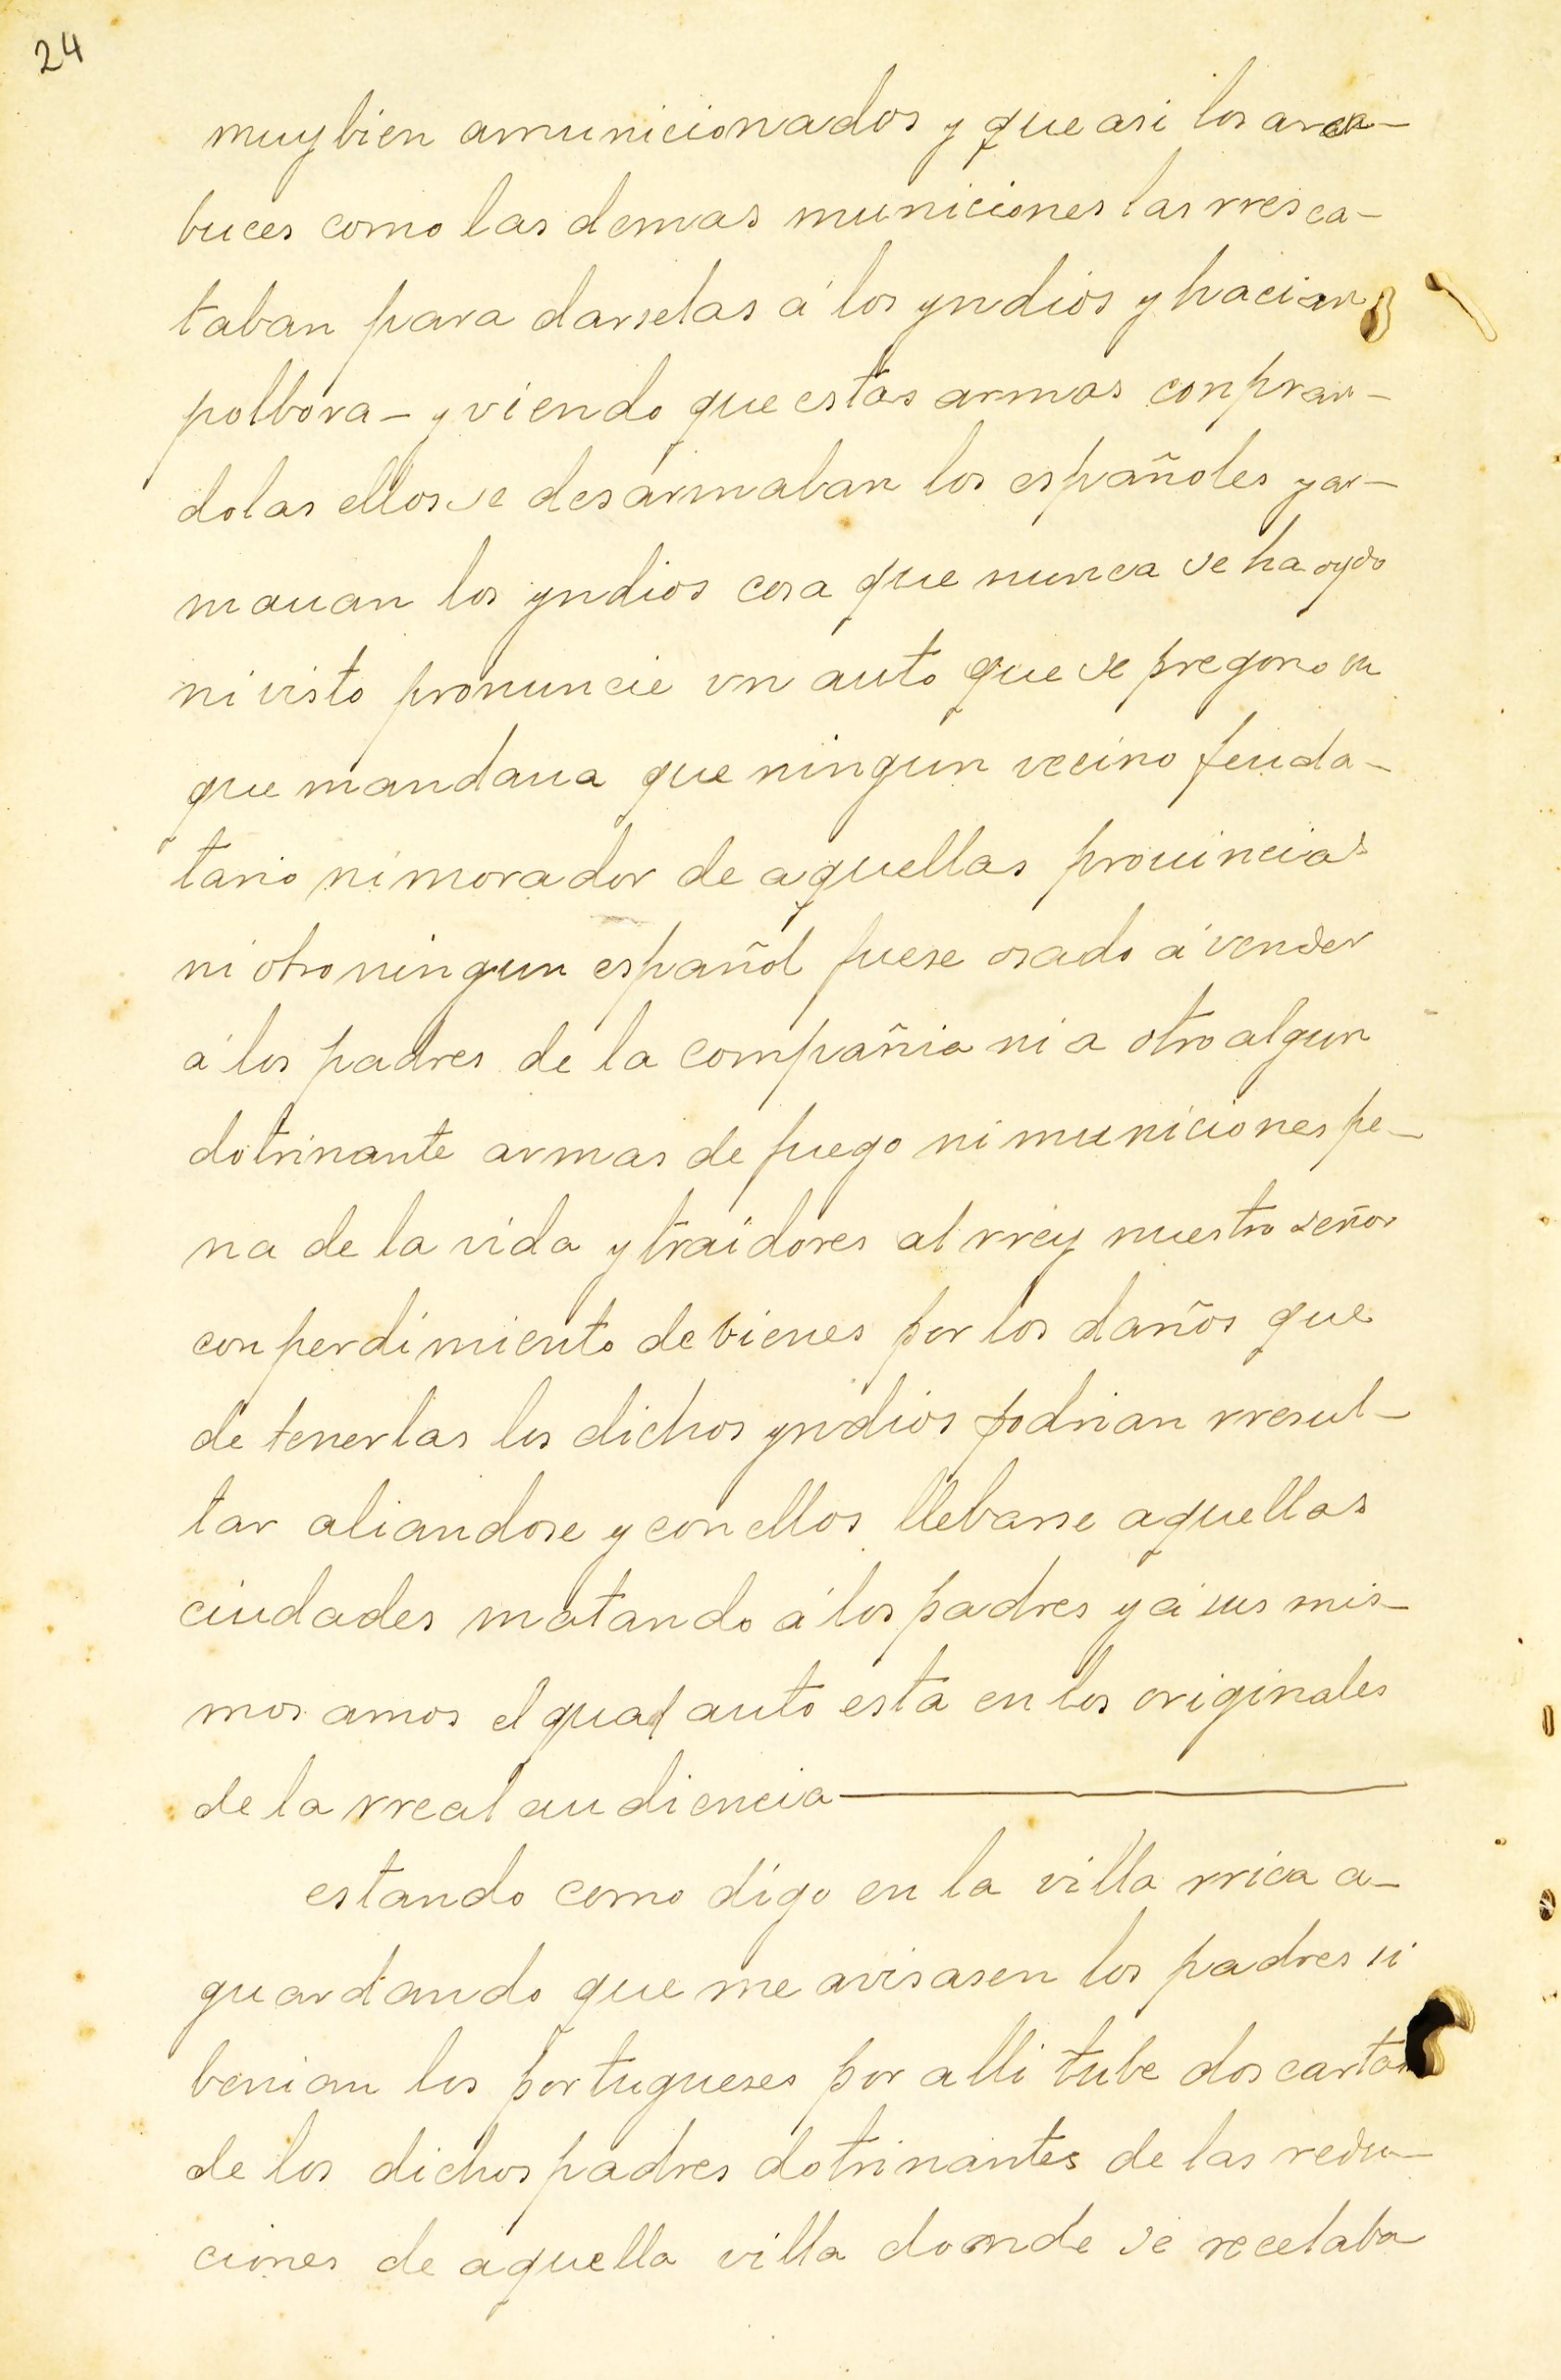 24
muy bien amunicionados y que asi los arca-
buces como las demas municiones las rresca-
taban para darselas á los yndios y hacian
polbora - y viendo que estas armas conpran-
dolas ellos se desarmaban los españoles y ar-
mauan los yndios cosa que nunca se ha oydo
ni visto pronuncie vn auto que se pregono en
que mandaua que ningun vecino feuda-
tario ni morador de aquellas prouincias
ni otro ningun español fuese osado á vender
á los padres de la compañia ni a otro algun
dotrinante armas de fuego ni municiones pe-
na de la vida y traidores al rrey nuestro señor
con perdimiento de bienes por los daños que
de tenerlas los dichos yndios podrian rresul-
tar aliandose y con ellos llebarse aquellas
ciudades matando á los padres y á sus mis-
mos amos el qual auto esta en los originales
de la rreal audiencia
estando como digo en la villa rrica a-
guardando que me avisasen los padres si
benian los portugueses por alli tube dos cartas
de los dichos padres dotrinantes de las redu-
ciones de aquella villa donde se recelaba